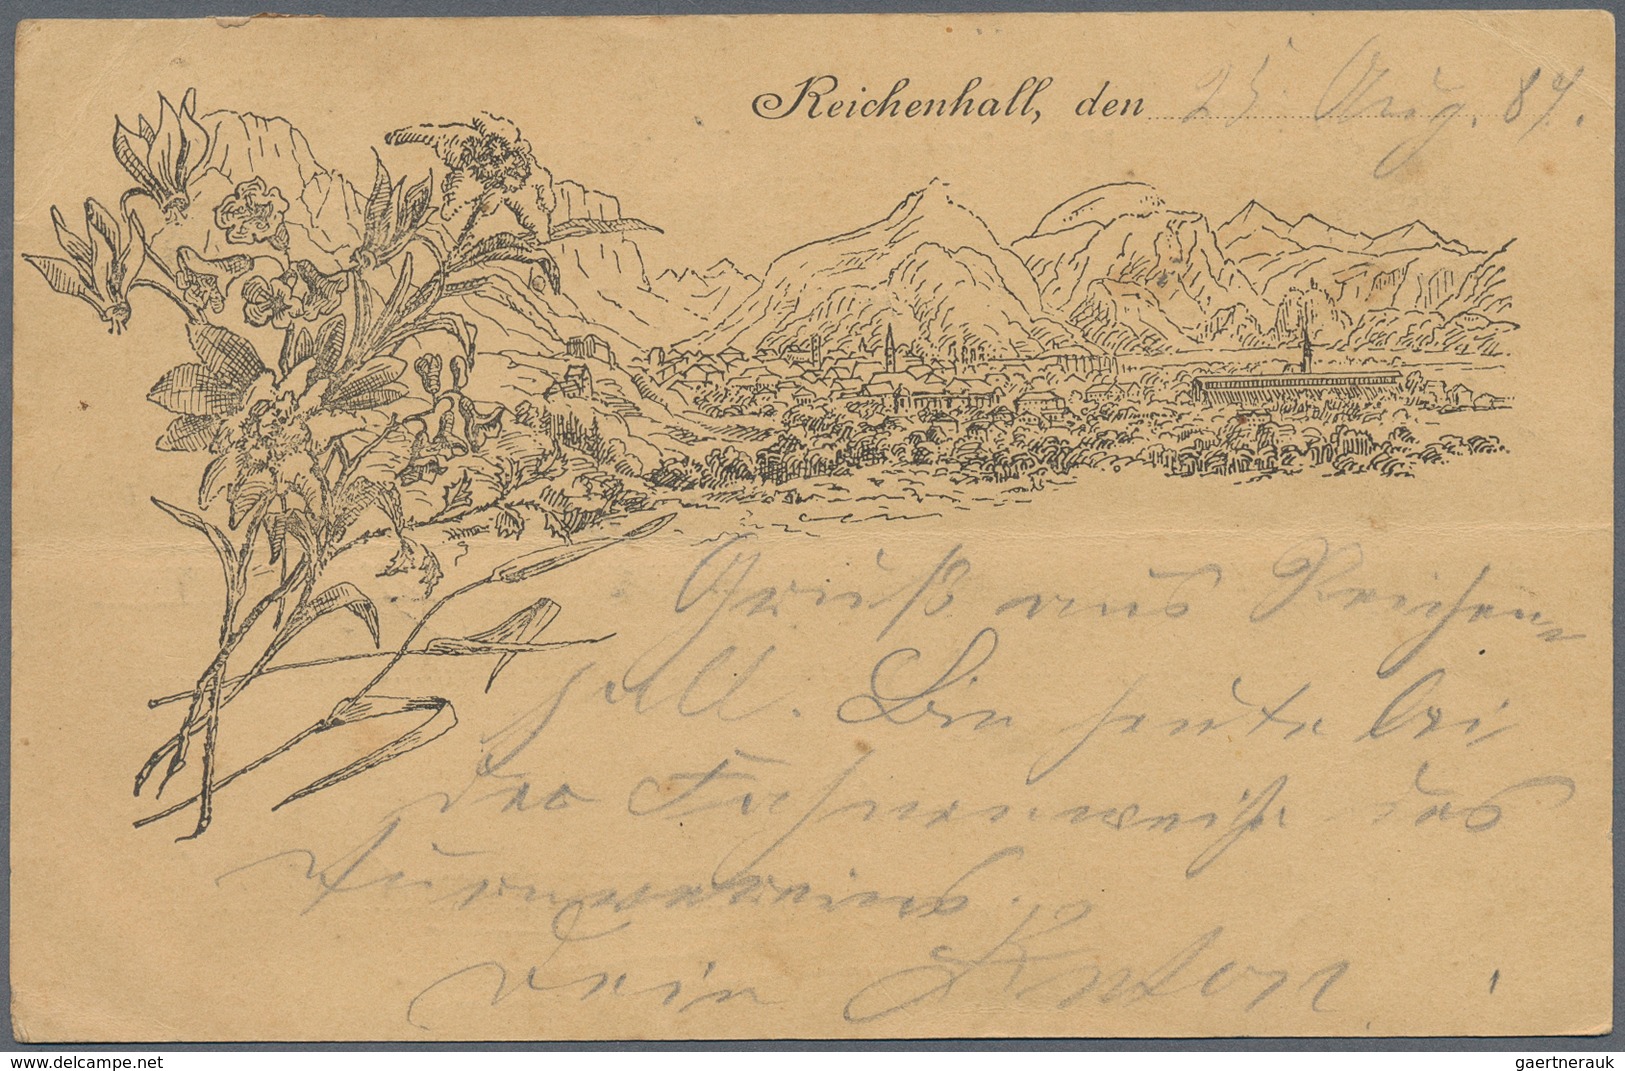 Reichenhall, den 25 Aug. 87.
Gruß aus Reichen-
hall. Bin heute bei
der Fahnenweihe des
Turnvereins.
Dein Anton
www.delcampe.net
gaertnerauk